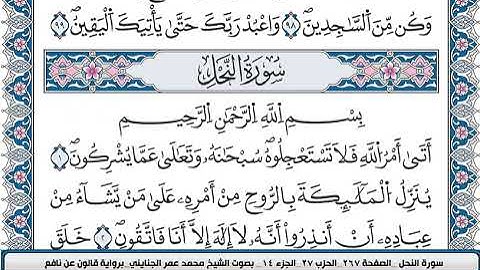 وَكُن مِّنَ ٱلسَّٰجِدِينَ ٩٨ وَٱعْبُدْ رَبَّكَ حَتَّىٰ يَأْتِيَكَ ٱلْيَقِينُ ٩٩
سُورَةُ النَّحْلِ
بِسْمِ ٱللَّهِ ٱلرَّحْمَٰنِ ٱلرَّحِيمِ
أَتَىٰٓ أَمْرُ ٱللَّهِ فَلَا تَسْتَعْجِلُوهُ سُبْحَٰنَهُۥ وَتَعَٰلَىٰ عَمَّا يُشْرِكُونَ ١
يُنَزِّلُ ٱلْمَلَٰٓئِكَةَ بِالرُّوحِ مِنْ أَمْرِهِۦ عَلَىٰ مَنْ يَّشَآءُ مِنْ
عِبَادِهِۦٓ أَنْ أَنذِرُوٓا۟ أَنَّهُۥ لَآ إِلَٰهَ إِلَّآ أَنَا فَٱتَّقُونِ ٢ خَلَقَ
سورة النحل _الصفحة ٢٦٧_ الحزب ٢٧_ الجزء ١٤ _ بصوت الشيخ محمد عمر الجنايني_ برواية قالون عن نافع